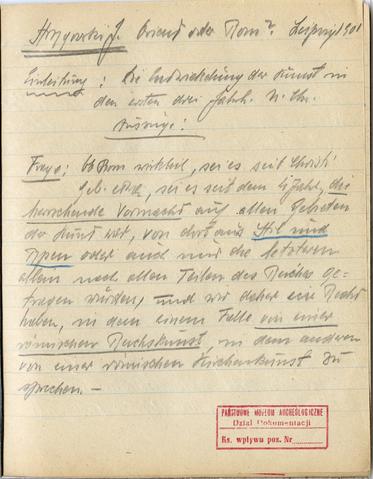 Strzygowski J. Orient oder Rom? Leipzig 1901
Einleitung: Die Entwickelung der Kunst in
den ersten drei Jahrh. n. Chr.
Auszüge:
Frage: Ob Rom wirklich, sei es seit Christi
geb. etwa, sei es seit dem 4 Jahrh, die
herrschende Vormacht auf allen Gebieten
der Kunst war, von dort aus Stil und
Typen oder auch nur die letzteren
allein nach allen Teilen des Reiches ge-
tragen wurden, und wir daher ein Recht
haben, in dem einem Falle von einer
römischen Reichskunst, in dem anderen
von einer römischen Kirchenkunst zu
sprechen. —
PAŃSTWOWE MUZEUM ARCHEOLOGICZNE
Dział Dokumentacji
Ks. wpływu poz. Nr